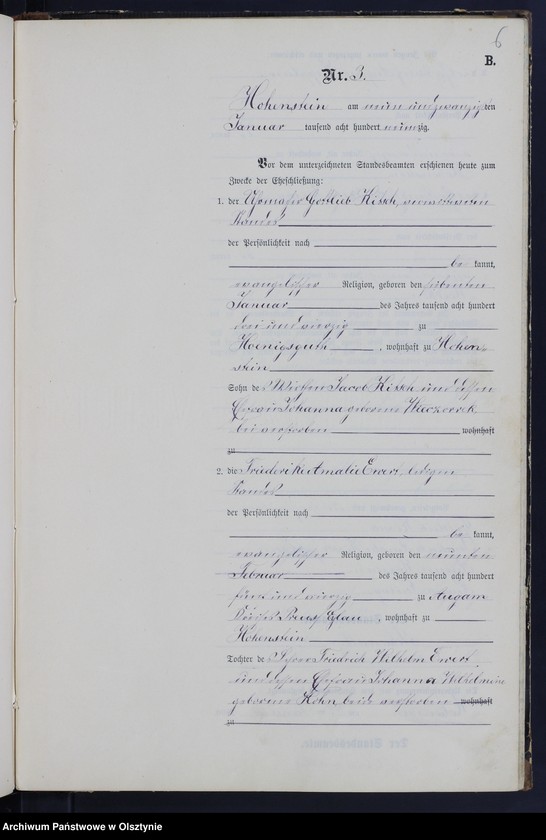 6
B.
Nr. 3.
Hohenstein am neun und zwanzigsten
Januar tausend acht hundert neunzig.
Vor dem unterzeichneten Standesbeamten erschienen heute zum
Zwecke der Eheschließung:
1. der Gottlieb Kisch, verwittweten
Standes
der Persönlichkeit nach
be kannt,
evangelischer Religion, geboren den siebenten
Januar des Jahres tausend acht hundert
drei und vierzig zu
Koenigsguth, wohnhaft zu Hohen-
stein
Sohn des Jacob Kisch und dessen
Ehefrau Johanna geborene Wieczorrek
beide verstorben wohnhaft
zu
2. die Friederike Amalie Ewert, ledigen
Standes
der Persönlichkeit nach
be kannt,
evangelischer Religion, geboren den neunten
Februar des Jahres tausend acht hundert
fünf und vierzig zu Augam
Kreises Preuss Eylau, wohnhaft zu
Hohenstein
Tochter des Friedrich Wilhelm Ewert
und dessen Ehefrau Johanna Wilhelmine
geborene Kohn, beide verstorben wohnhaft
zu
Archiwum Państwowe w Olsztynie